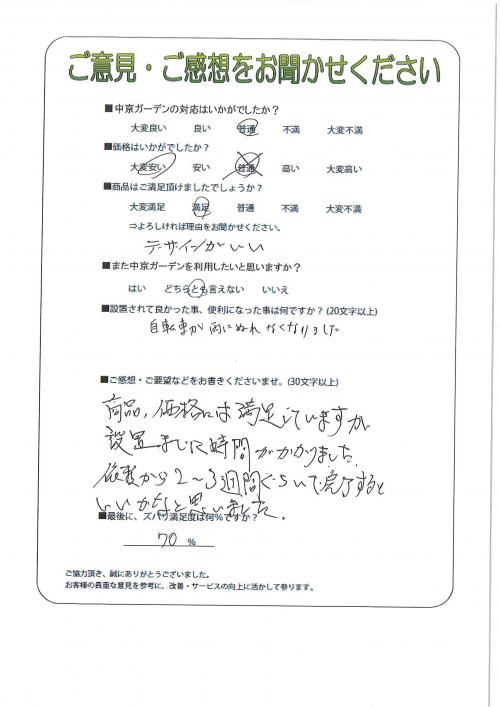 ご意見・ご感想をお聞かせください
■中京ガーデンの対応はいかがでしたか？
大変良い 良い 普通 不満 大変不満
■価格はいかがでしたか？
大変安い 安い 普通 高い 大変高い
■商品はご満足頂けましたでしょうか？
大変満足 満足 普通 不満 大変不満
⇒よろしければ理由をお聞かせください。
デザインがいい
■また中京ガーデンを利用したいと思いますか？
はい どちらとも言えない いいえ
■設置されて良かった事、便利になった事は何ですか？(20文字以上)
自転車が雨にぬれなくなりました
■ご感想・ご要望などをお書きくださいませ。(30文字以上)
商品、価格には満足していますが
設置までに時間がかかりました。
依頼から2～3週間ぐらいで完了すると
いいかなと思いました。
■最後に、ズバリ満足度は何%ですか？
70 %
ご協力頂き、誠にありがとうございました。
お客様の貴重な意見を参考に、改善・サービスの向上に活かして参ります。